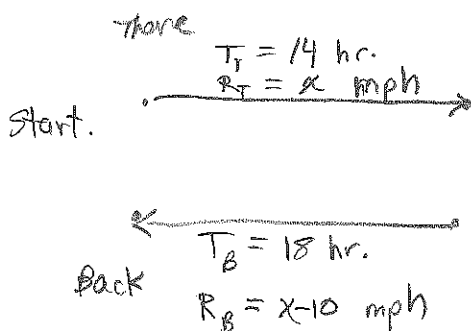 There
T_T = 14 hr.
R_T = x mph
Start.
T_B = 18 hr.
Back
R_B = x-10 mph